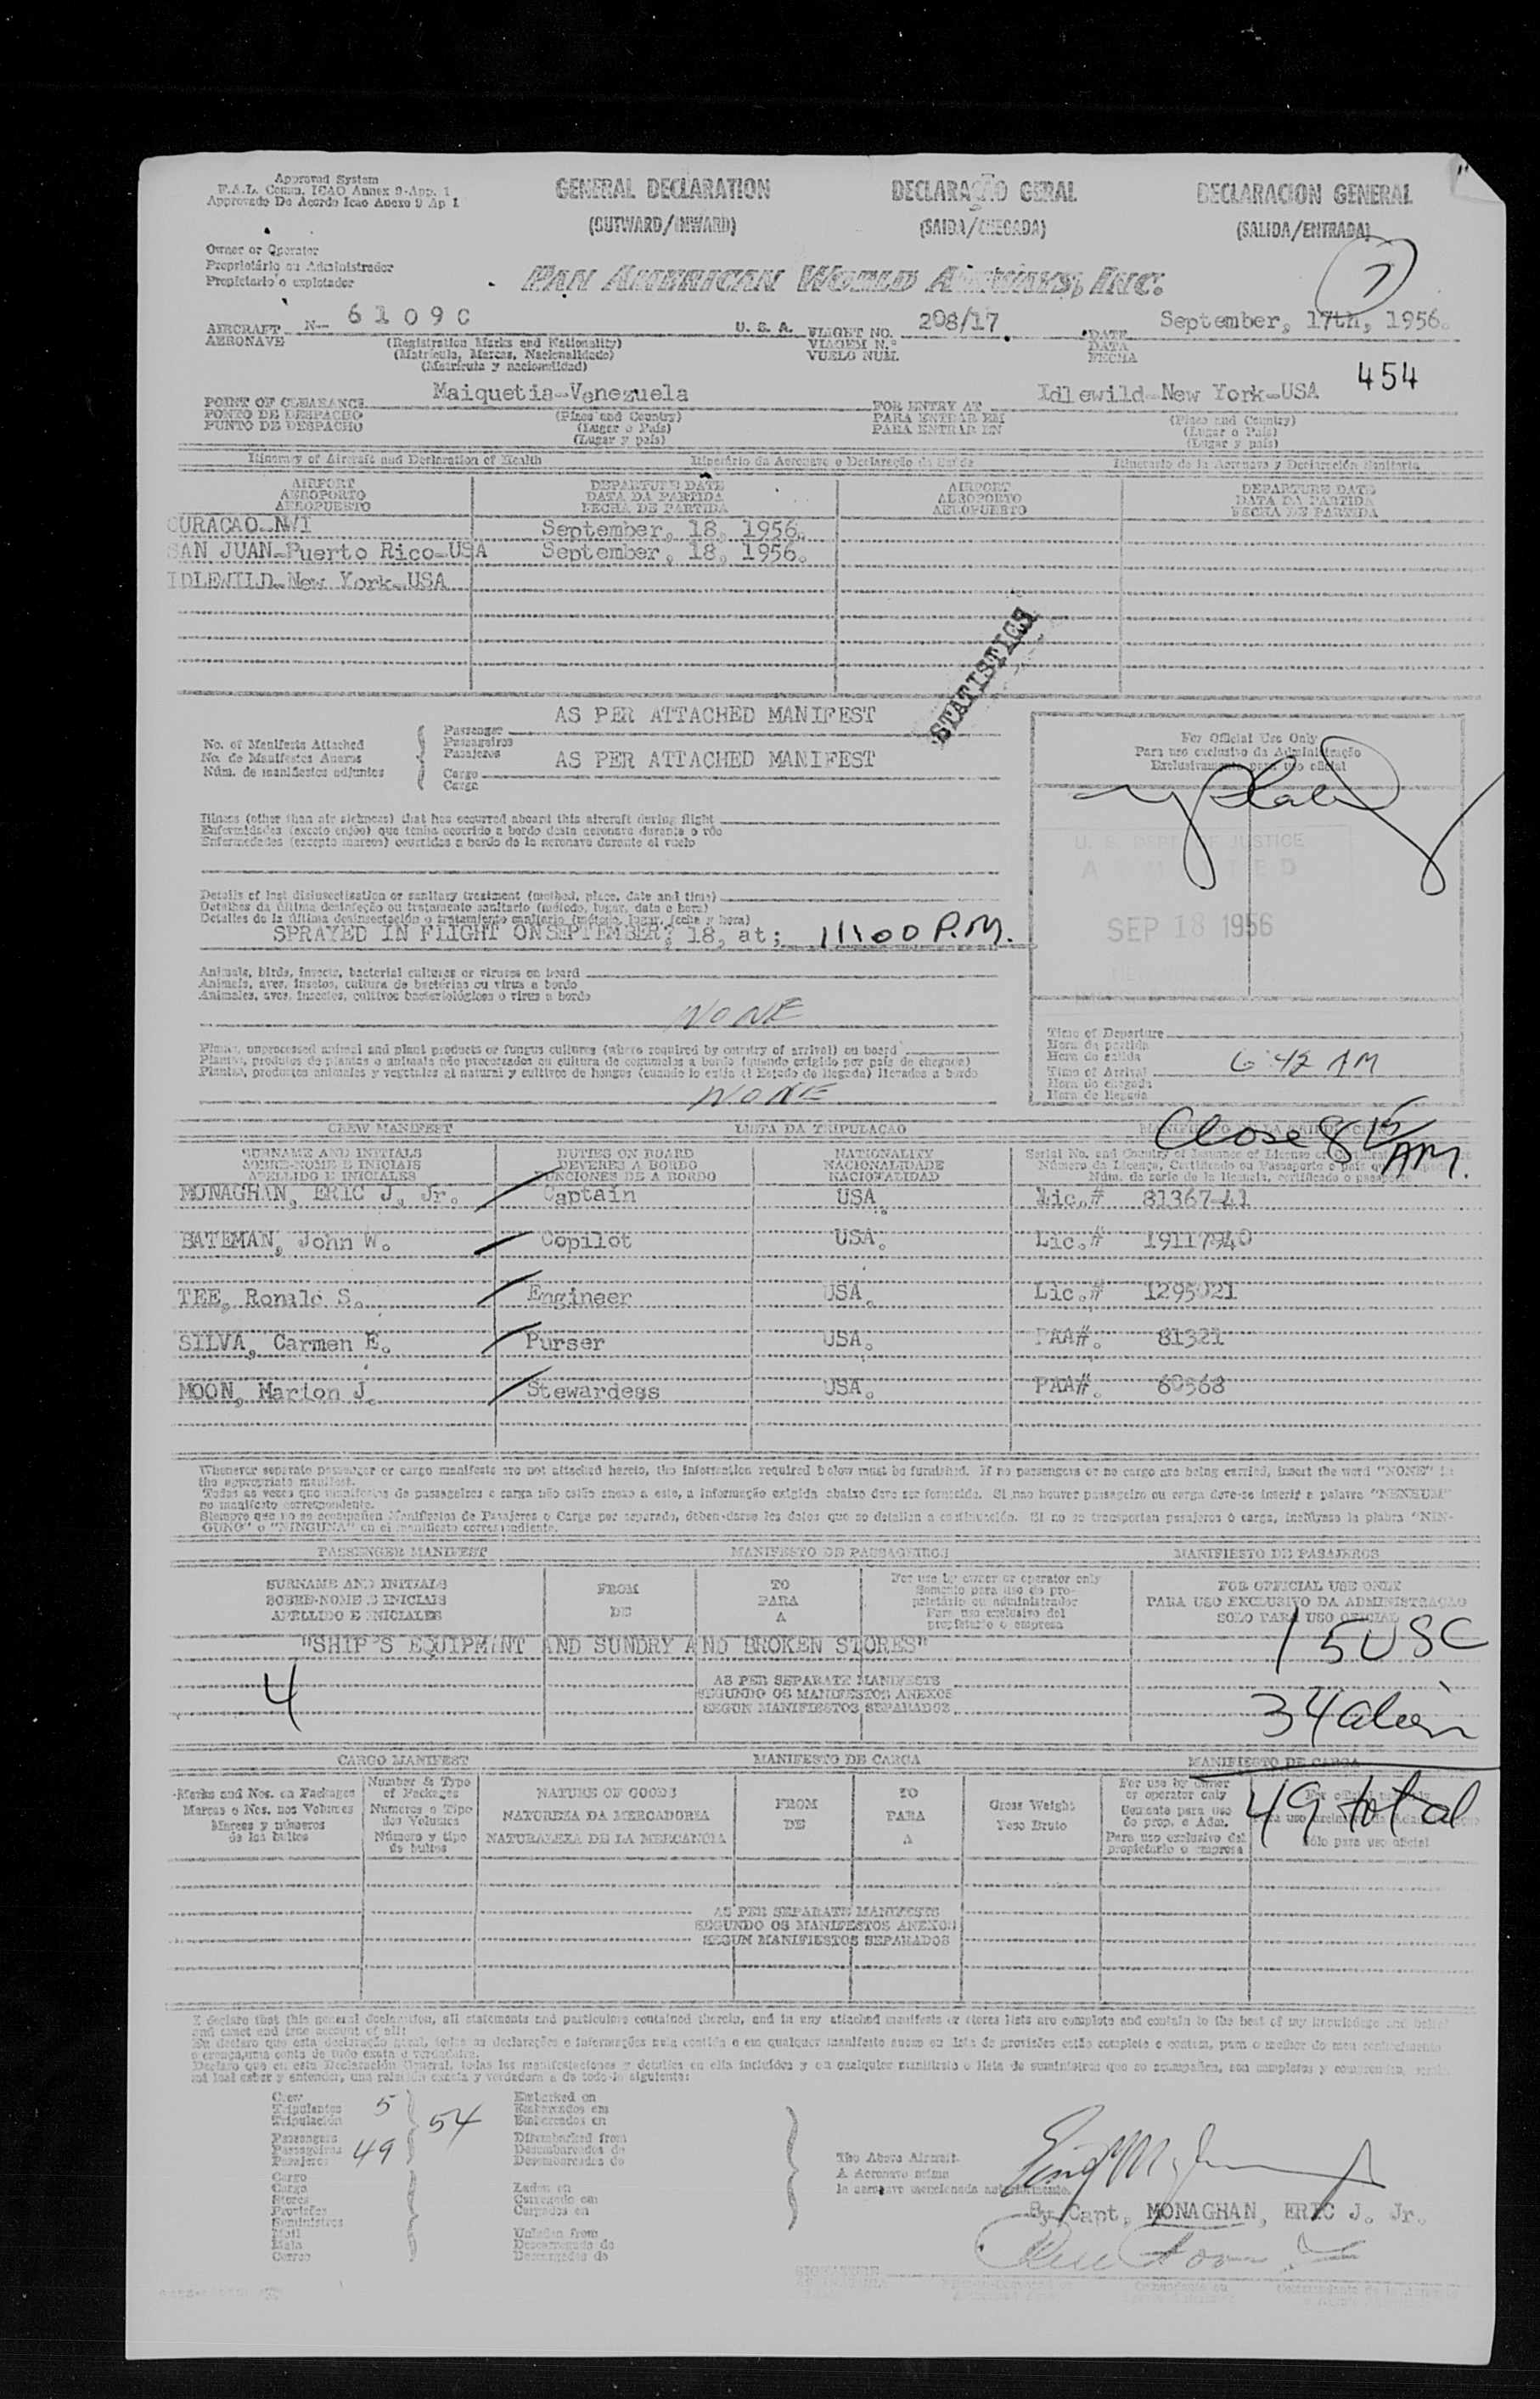 Approved System
F.A.L. Comm. ICAO Annex 9-App. 1
Approvado De Acordo Icao Anexo 9 Ap 1
GENERAL DECLARATION
(OUTWARD/INWARD)
DECLARAÇÃO GERAL
(SAIDA/CHEGADA)
DECLARACION GENERAL
(SALIDA/ENTRADA)
Owner or Operator
Proprietário ou Administrador
Propietario o explotador
PAN AMERICAN WORLD AIRWAYS, INC.
AIRCRAFT N- 6109C U. S. A. FLIGHT NO. 208/17 DATE September, 17th, 1956.
AERONAVE (Registration Marks and Nationality) VIAGEM N.º DATA
(Matrícula, Marcas, Nacionalidade) VUELO NUM. FECHA
(Matrícula y nacionalidad)
454
POINT OF CLEARANCE Maiquetia-Venezuela FOR ENTRY AT Idlewild-New York-USA
PONTO DE DESPACHO (Place and Country) PARA ENTRAR EM (Place and Country)
PUNTO DE DESPACHO (Lugar o País) PARA ENTRAR EN (Lugar o País)
(Lugar y país) (Lugar y país)
Itinerary of Aircraft and Declaration of Health Itinerário da Aeronave e Declaração da Saúde Itinerario de la Aeronave y Declaración Sanitaria
AIRPORT DEPARTURE DATE AIRPORT DEPARTURE DATE
AEROPORTO DATA DA PARTIDA AEROPORTO DATA DA PARTIDA
AEROPUERTO FECHA DE PARTIDA AEROPUERTO FECHA DE PARTIDA
CURACAO-NWI September, 18, 1956.
SAN JUAN-Puerto Rico-USA September, 18, 1956.
IDLEWILD-New York-USA
STATISTICS
No. of Manifests Attached
No. de Manifestos Anexos
Núm. de manifiestos adjuntos
Passenger AS PER ATTACHED MANIFEST
Passageiros
Pasajeros
Cargo AS PER ATTACHED MANIFEST
Carga
For Official Use Only
Para uso exclusivo da Administração
Exclusivamente para uso oficial
Illness (other than air sickness) that has occurred aboard this aircraft during flight
Enfermidades (exceto enjôo) que tenha ocorrido a bordo desta aeronave durante o vôo
Enfermedades (excepto mareos) ocurridas a bordo de la aeronave durante el vuelo
U. S. DEPT OF JUSTICE
ADMITTED
SEP 18 1956
Details of last disinsectisation or sanitary treatment (method, place, date and time)
Detalhes da última desinfeção ou tratamento sanitario (método, lugar, data e hora)
Detalles de la última desinsectación o tratamiento sanitario (método, lugar, fecha y hora)
SPRAYED IN FLIGHT ON SEPTEMBER, 18, at; 11:00 P.M.
Animals, birds, insects, bacterial cultures or viruses on board
Animais, aves, insetos, cultura de bactérias ou virus a bordo
Animales, aves, insectos, cultivos bacteriológicos o virus a bordo
NONE
Plants, unprocessed animal and plant products or fungus cultures (where required by country of arrival) on board
Plantas, produtos de plantas o animais não processados ou cultura de cogumelos a bordo (quando exigido por país de chegada)
Plantas, productos animales y vegetales al natural y cultivos de hongos (cuando lo exija el Estado de llegada) llevados a bordo
NONE
Time of Departure
Hora da partida
Hora de salida
Time of Arrival 6:42 AM
Hora de chegada
Hora de llegada
Close 8 15/AM.
CREW MANIFEST LISTA DA TRIPULAÇÃO
SURNAME AND INITIALS DUTIES ON BOARD NATIONALITY
SOBRE-NOME E INICIAIS DEVERES A BORDO NACIONALIDADE
APELLIDO E INICIALES FUNCIONES DE A BORDO NACIONALIDAD
MONAGHAN, ERIC J. Jr. Captain USA. Lic.# 81367-41
BATEMAN, John W. Copilot USA. Lic.# 19117940
TEE, Ronald S. Engineer USA. Lic.# 1295021
SILVA, Carmen E. Purser USA. PAA#. 81321
MOON, Marion J. Stewardess USA. PAA#. 60568
Whenever separate passenger or cargo manifests are not attached hereto, the information required below must be furnished. If no passengers or no cargo are being carried, insert the word "NONE" in
the appropriate manifest.
Todas as vezes que manifestos de passageiros e carga não estão anexo a este, a informação exigida abaixo deve ser fornecida. Si nao houver passageiro ou carga deve-se inserir a palavra "NENHUM"
no manifesto correspondente.
Siempre que no se acompañen Manifiestos de Pasajeros o Carga por separado, deben darse los datos que se detallan a continuación. Si no se transportan pasajeros ó carga, inclúyase la plabra "NIN-
GUNO" o "NINGUNA" en el manifiesto correspondiente.
PASSENGER MANIFEST MANIFESTO DE PASSAGEIROS MANIFIESTO DE PASAJEROS
SURNAME AND INITIALS FROM TO For use by owner or operator only FOR OFFICIAL USE ONLY
SOBRE-NOME E INICIAIS PARA Somente para uso do pro- PARA USO EXCLUSIVO DA ADMINISTRAÇÃO
APELLIDO E INICIALES DE A prietário ou administrador SOLO PARA USO OFICIAL
Para uso exclusivo del
propietario o empresa
"SHIP'S EQUIPMENT AND SUNDRY AND BROKEN STORES"
15 USC
4
AS PER SEPARATE MANIFESTS
SEGUNDO OS MANIFESTOS ANEXOS
SEGUN MANIFIESTOS SEPARADOS
34 alien
49 total
CARGO MANIFEST MANIFESTO DE CARGA MANIFIESTO DE CARGA
Marks and Nos. on Packages Number & Type of Packages NATURE OF GOODS FROM TO Gross Weight For use by owner or operator only
Marcas o Nos. nos Volumes Numeros e Tipo dos Volumes NATUREZA DA MERCADORIA DE PARA Peso Bruto Somente para uso do prop. e Adm.
Marcas y números de los bultos Número y tipo de bultos NATURALEZA DE LA MERCANCIA A Para uso exclusivo del propietario o empresa Sólo para uso oficial
AS PER SEPARATE MANIFESTS
SEGUNDO OS MANIFESTOS ANEXOS
SEGUN MANIFIESTOS SEPARADOS
I declare that this general declaration, all statements and particulars contained therein, and in any attached manifests or stores lists are complete and contain to the best of my knowledge and belief
and exact and true account of all:
Crew 5 Embarked on
Tripulantes Embarcados em
Tripulación 54 Embarcados en
Passengers 49 Disembarked from
Passageiros Desembarcados de
Pasajeros Desembarcados de
Cargo
Carga Laden on
Stores Carregado em
Provisões Cargados en
Suministros
Mail Unladen from
Mala Descarregado de
Correo Descargados de
The Above Aircraft
A Aeronave acima
la aeronave mencionada anteriormente.
By Capt, MONAGHAN, ERIC J. Jr.
SIGNATURE